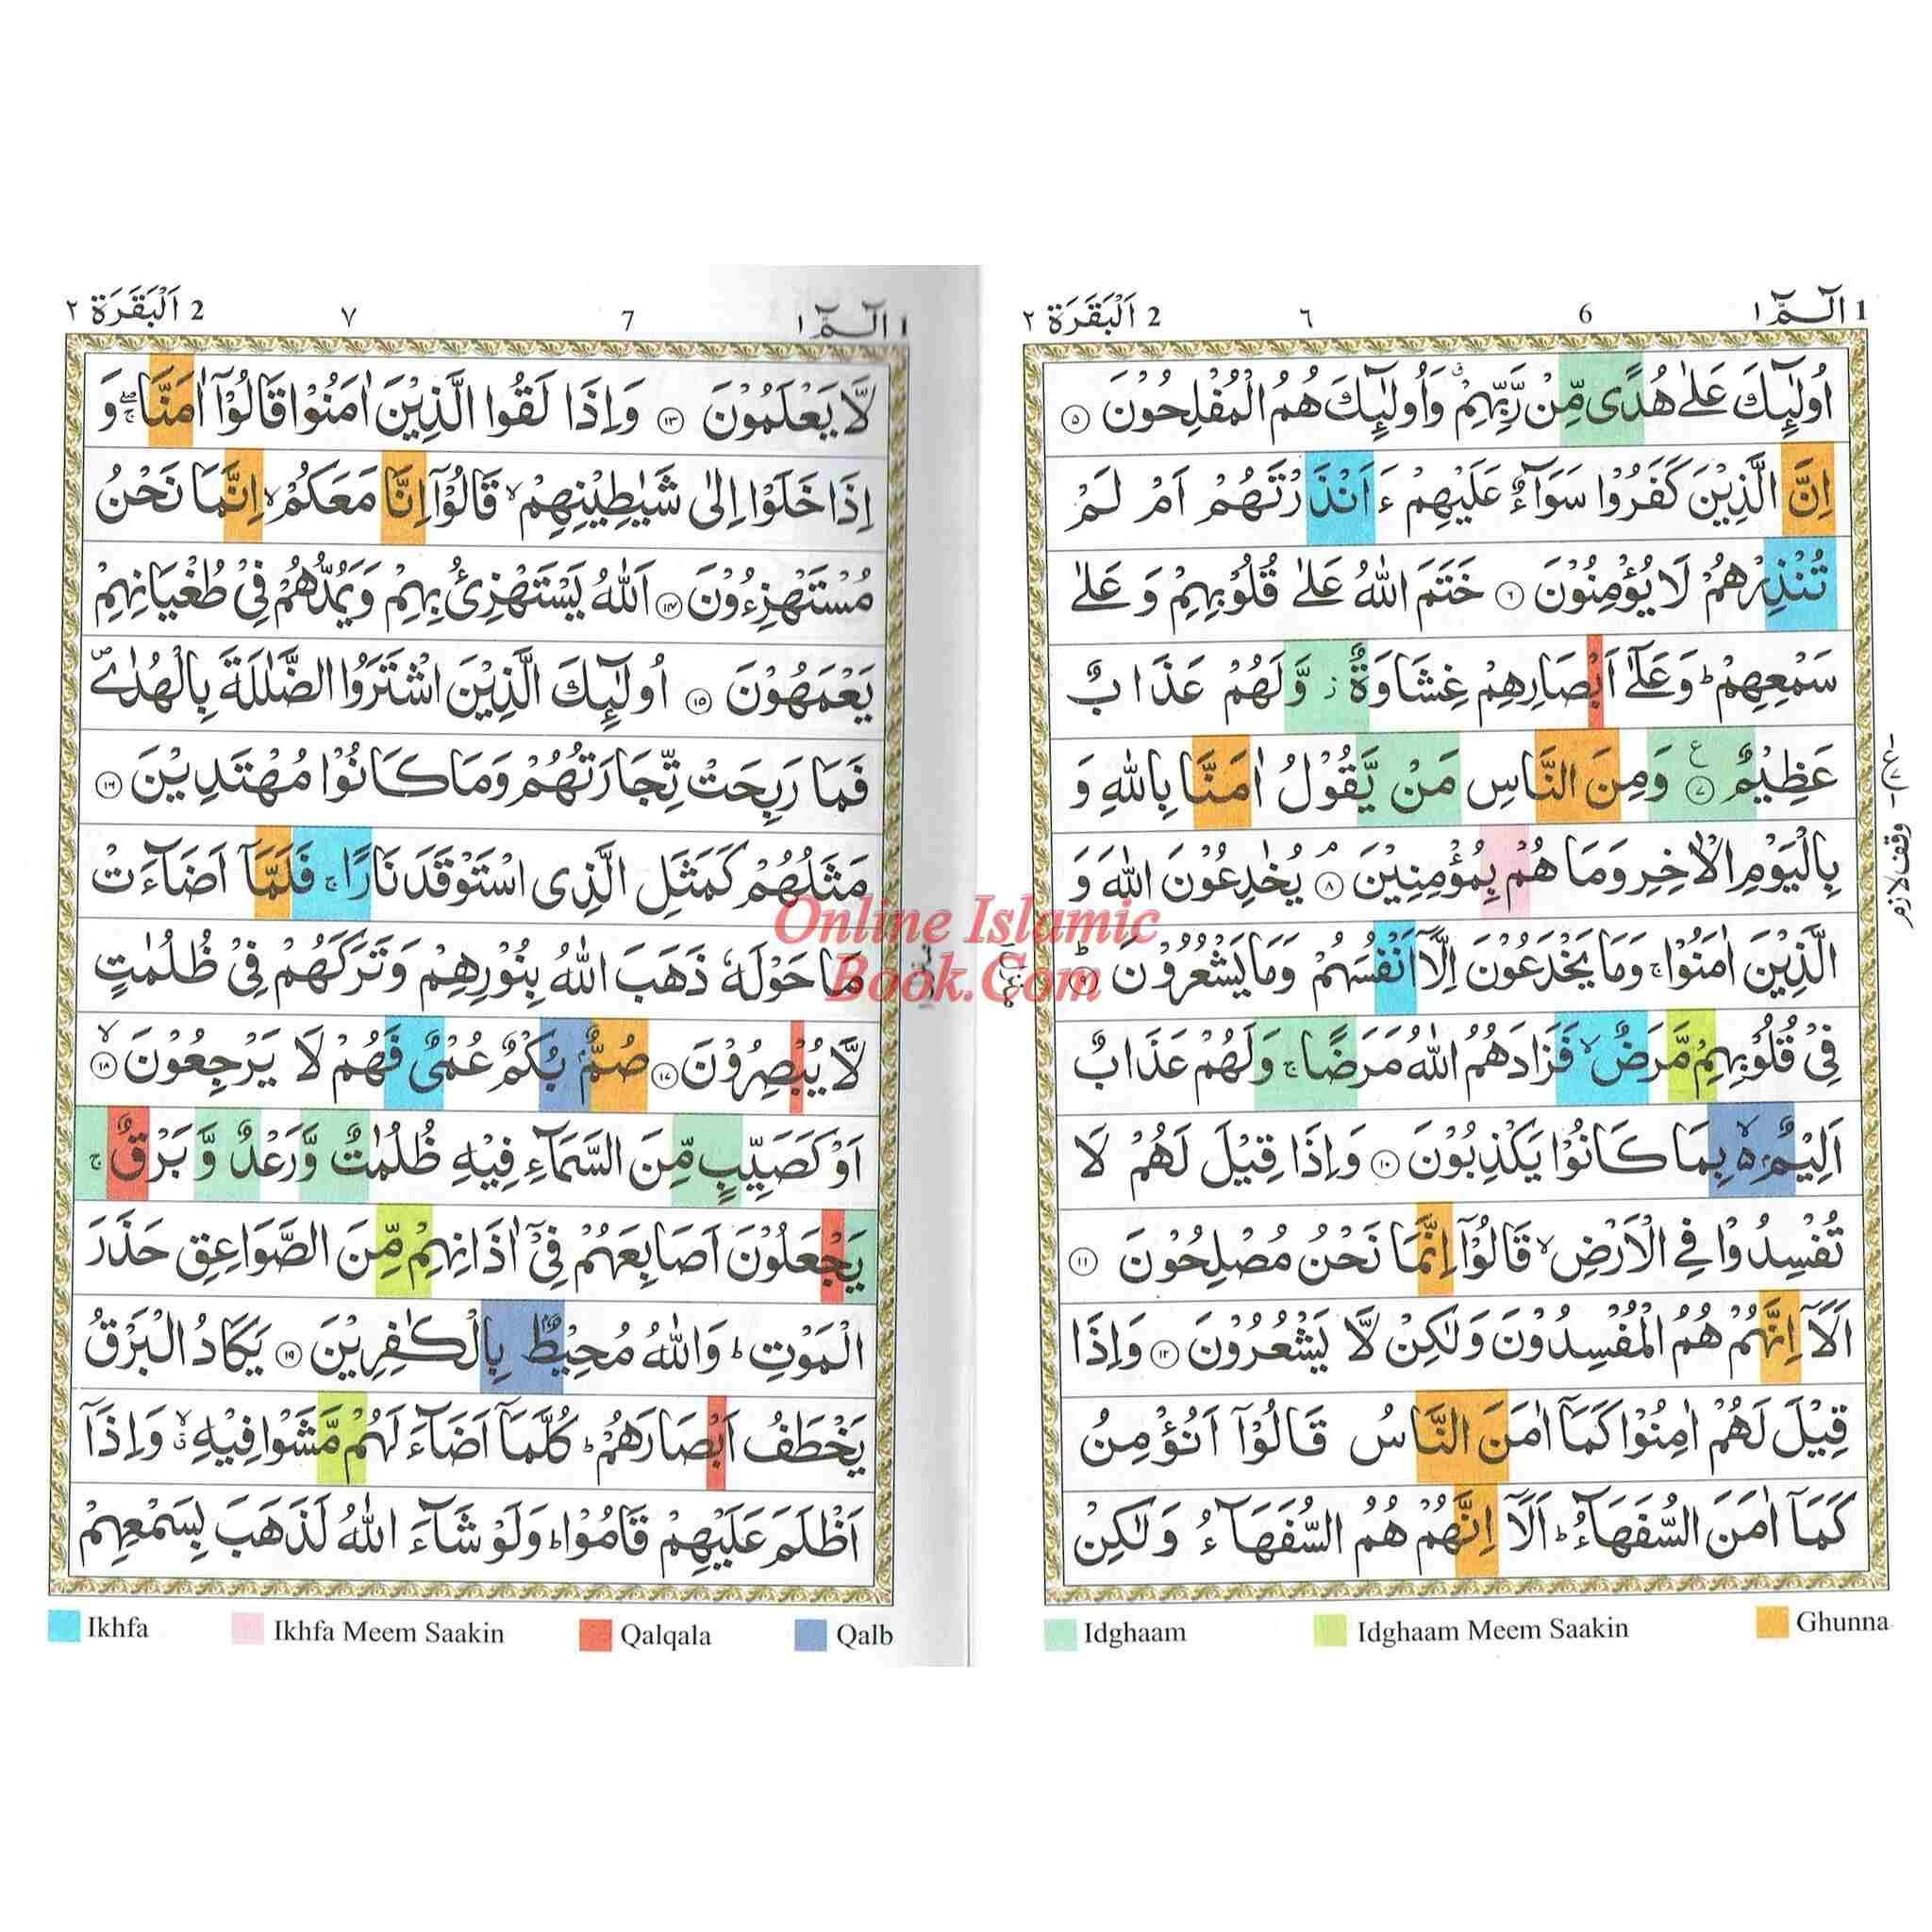 1 الٓـمّٓ ١ 6 ٦ 2 اَلْبَقَرَة ٢
اُولٰٓئِكَ عَلٰى هُدًى مِّنْ رَّبِّهِمْ ۗ وَاُولٰٓئِكَ هُمُ الْمُفْلِحُوْنَ ۝٥
اِنَّ الَّذِيْنَ كَفَرُوْا سَوَآءٌ عَلَيْهِمْ ءَ اَنْذَرْتَهُمْ اَمْ لَمْ
تُنْذِرْهُمْ لَا يُؤْمِنُوْنَ ۝٦ خَتَمَ اللّٰهُ عَلٰى قُلُوْبِهِمْ وَ عَلٰى
سَمْعِهِمْ ؕ وَ عَلٰٓى اَبْصَارِهِمْ غِشَاوَةٌ ز وَّ لَهُمْ عَذَابٌ
عَظِيْمٌ ۝٧ ع وَمِنَ النَّاسِ مَنْ يَّقُوْلُ اٰمَنَّا بِاللّٰهِ وَ
بِالْيَوْمِ الْاٰخِرِ وَمَا هُمْ بِمُؤْمِنِيْنَ ۝٨ م يُخٰدِعُوْنَ اللّٰهَ وَ
الَّذِيْنَ اٰمَنُوْا ۚ وَمَا يَخْدَعُوْنَ اِلَّآ اَنْفُسَهُمْ وَمَا يَشْعُرُوْنَ ۝٩ ؕ
فِيْ قُلُوْبِهِمْ مَّرَضٌ ۙ فَزَادَهُمُ اللّٰهُ مَرَضًا ۚ وَلَهُمْ عَذَابٌ
اَلِيْمٌ ۢ ۙ۬ بِمَا كَانُوْا يَكْذِبُوْنَ ۝١٠ وَاِذَا قِيْلَ لَهُمْ لَا
تُفْسِدُوْا فِي الْاَرْضِ ۙ قَالُوْٓا اِنَّمَا نَحْنُ مُصْلِحُوْنَ ۝١١
اَلَآ اِنَّهُمْ هُمُ الْمُفْسِدُوْنَ وَلٰكِنْ لَّا يَشْعُرُوْنَ ۝١٢ وَاِذَا
قِيْلَ لَهُمْ اٰمِنُوْا كَمَآ اٰمَنَ النَّاسُ قَالُوْٓا اَنُؤْمِنُ
كَمَآ اٰمَنَ السُّفَهَآءُ ؕ اَلَآ اِنَّهُمْ هُمُ السُّفَهَآءُ وَلٰكِنْ
وقف لازم
Idghaam Idghaam Meem Saakin Ghunna
1 الٓـمّٓ ١ 7 ٧ 2 اَلْبَقَرَة ٢
لَّا يَعْلَمُوْنَ ۝١٣ وَاِذَا لَقُوا الَّذِيْنَ اٰمَنُوْا قَالُوْٓا اٰمَنَّا ۚۖ وَ
اِذَا خَلَوْا اِلٰى شَيٰطِيْنِهِمْ ۙ قَالُوْٓا اِنَّا مَعَكُمْ ۙ اِنَّمَا نَحْنُ
مُسْتَهْزِءُوْنَ ۝١٤ اَللّٰهُ يَسْتَهْزِئُ بِهِمْ وَيَمُدُّهُمْ فِيْ طُغْيَانِهِمْ
يَعْمَهُوْنَ ۝١٥ اُولٰٓئِكَ الَّذِيْنَ اشْتَرَوُا الضَّلٰلَةَ بِالْهُدٰى ۪
فَمَا رَبِحَتْ تِّجَارَتُهُمْ وَمَا كَانُوْا مُهْتَدِيْنَ ۝١٦
مَثَلُهُمْ كَمَثَلِ الَّذِى اسْتَوْقَدَ نَارًا ۚ فَلَمَّآ اَضَآءَتْ
مَا حَوْلَهٗ ذَهَبَ اللّٰهُ بِنُوْرِهِمْ وَتَرَكَهُمْ فِيْ ظُلُمٰتٍ
لَّا يُبْصِرُوْنَ ۝١٧ صُمٌّۢ بُكْمٌ عُمْيٌ فَهُمْ لَا يَرْجِعُوْنَ ۝١٨ ۙ
اَوْ كَصَيِّبٍ مِّنَ السَّمَآءِ فِيْهِ ظُلُمٰتٌ وَّرَعْدٌ وَّ بَرْقٌ ۚ
يَجْعَلُوْنَ اَصَابِعَهُمْ فِيْٓ اٰذَانِهِمْ مِّنَ الصَّوَاعِقِ حَذَرَ
الْمَوْتِ ؕ وَاللّٰهُ مُحِيْطٌۢ بِالْكٰفِرِيْنَ ۝١٩ يَكَادُ الْبَرْقُ
يَخْطَفُ اَبْصَارَهُمْ ؕ كُلَّمَآ اَضَآءَ لَهُمْ مَّشَوْا فِيْهِ ۙ وَاِذَآ
اَظْلَمَ عَلَيْهِمْ قَامُوْا ؕ وَلَوْ شَآءَ اللّٰهُ لَذَهَبَ بِسَمْعِهِمْ
Ikhfa Ikhfa Meem Saakin Qalqala Qalb
Online Islamic
Book.Com